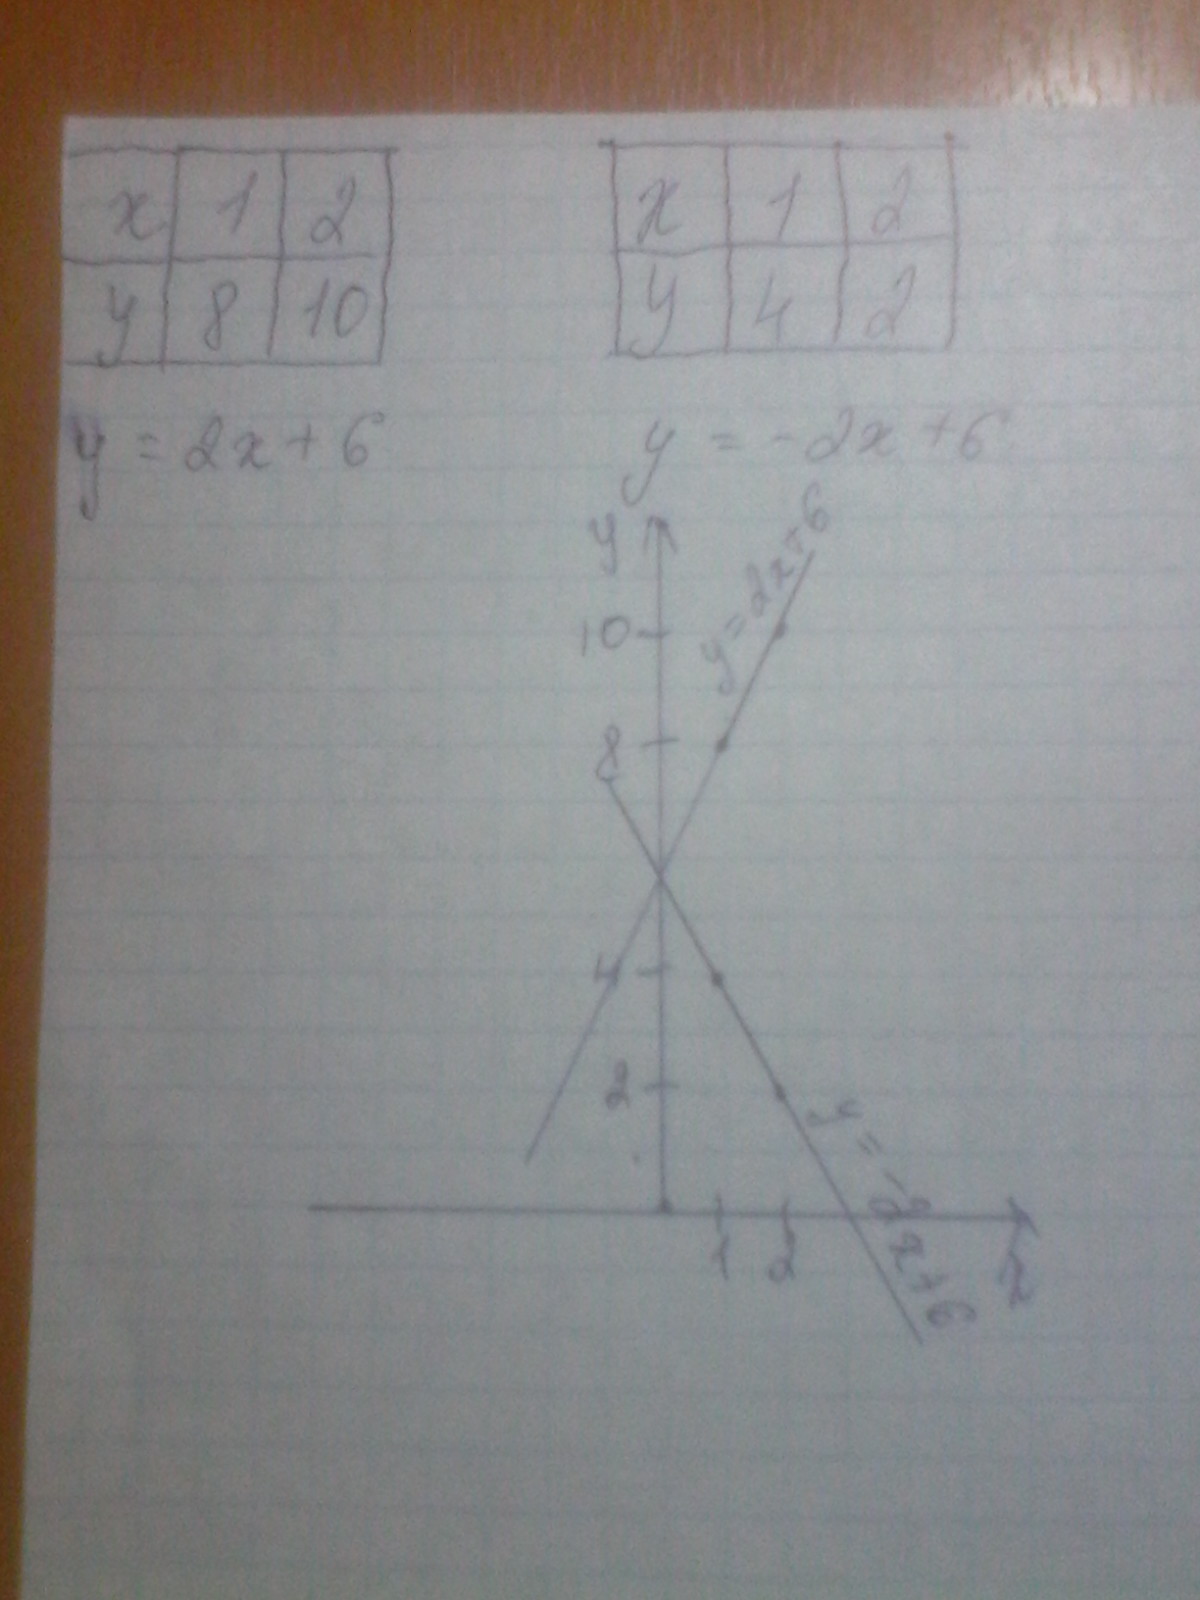 x 1 2
y 8 10
x 1 2
y 4 2
y = 2x + 6
y = -2x + 6
y
y = 2x + 6
10
8
4
2
y = -2x + 6
1 2
x